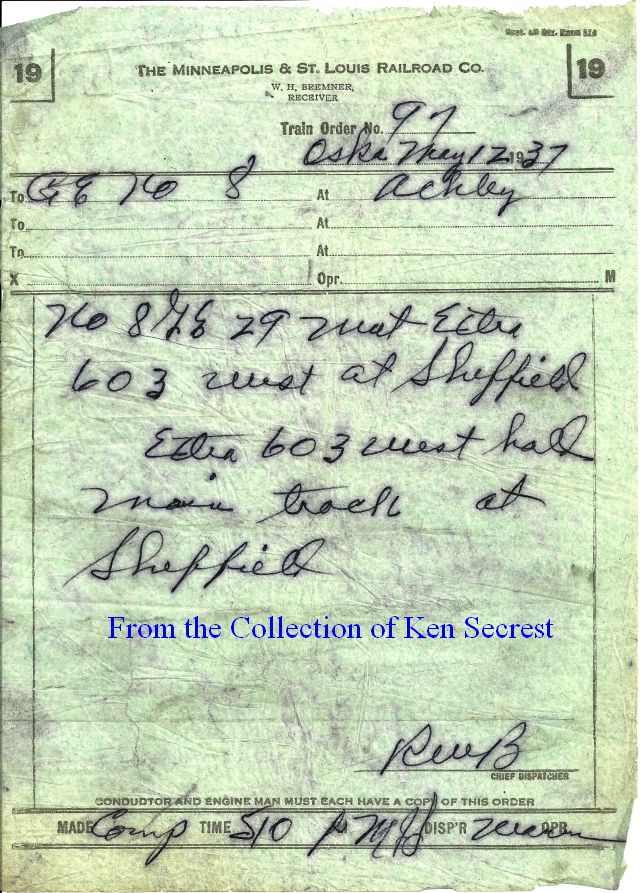 19
THE MINNEAPOLIS & ST. LOUIS RAILROAD CO.
19
W. H. BREMNER,
RECEIVER
Train Order No. 97
Oska May 12 1937
To C & E No 8 At Ackley
To At
To At
X Opr. M
No 8 Eng 29 meet Extra
603 west at Sheffield
Extra 603 west hold
main track at
Sheffield
From the Collection of Ken Secrest
CHIEF DISPATCHER
CONDUCTOR AND ENGINE MAN MUST EACH HAVE A COPY OF THIS ORDER
MADE Comp TIME 510 P M DISP'R OPR